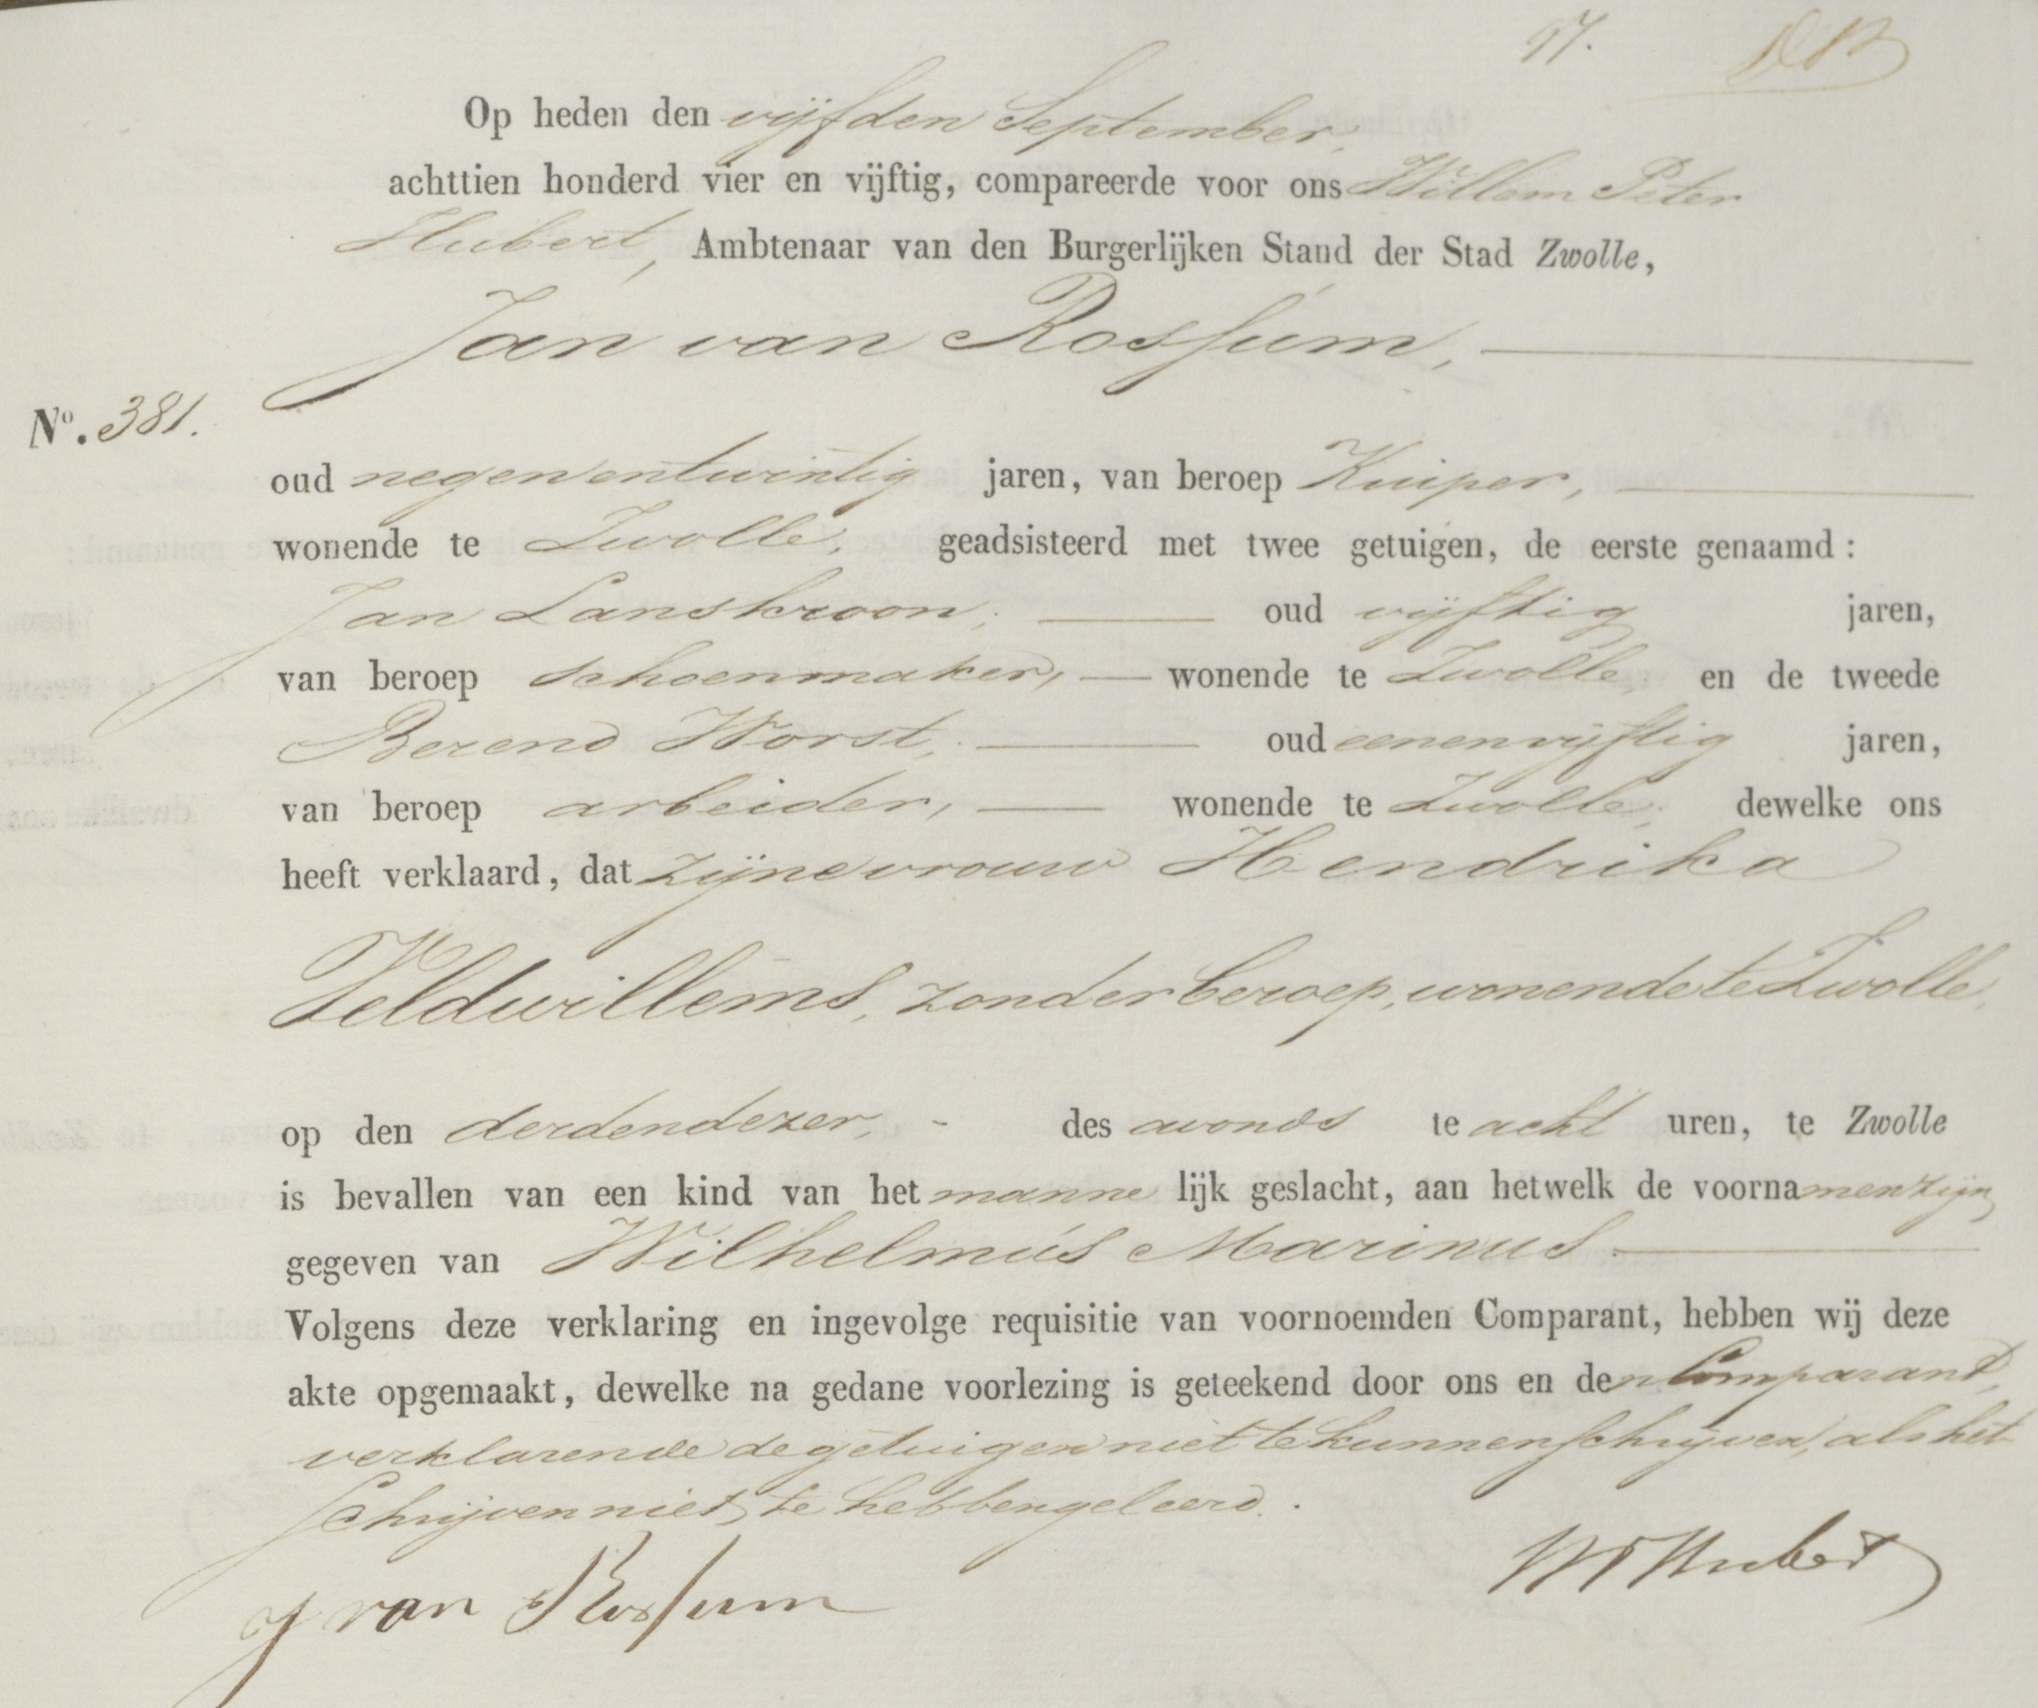 97.
Op heden den vijfden September,
achttien honderd vier en vijftig, compareerde voor ons Willem Peter
Hubert, Ambtenaar van den Burgerlijken Stand der Stad Zwolle,
Jan van Rossum,
No. 381.
oud negenentwintig jaren, van beroep Kuiper,
wonende te Zwolle, geadsisteerd met twee getuigen, de eerste genaamd:
Jan Lanskroon, oud vijftig jaren,
van beroep schoenmaker, wonende te Zwolle, en de tweede
Berend Worst, oud eenenvijftig jaren,
van beroep arbeider, wonende te Zwolle, dewelke ons
heeft verklaard, dat zijne vrouw Hendrika
Veldwillems, zonder beroep, wonende te Zwolle,
op den derden dezer, des avonds te acht uren, te Zwolle
is bevallen van een kind van het mannelijk geslacht, aan hetwelk de voornamen zijn
gegeven van Wilhelmus Marinus.
Volgens deze verklaring en ingevolge requisitie van voornoemden Comparant, hebben wij deze
akte opgemaakt, dewelke na gedane voorlezing is geteekend door ons en den Comparant,
verklarende de getuigen niet te kunnen schrijven, als het
schrijven niet te hebben geleerd.
WP Hubert
J van Rossum